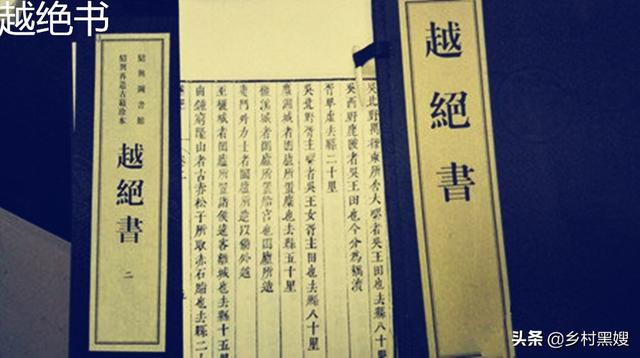 越绝书
越絕書
吳北野禺櫟東所舍大疁者吳王田也去縣八十里
吳西野鹿陂者吳王田也今分為耦瀆
胥卑虛去縣二十里
吳北野胥主疁者吳王女胥主田也去縣八十里
麋湖城者闔廬所置麋也去縣五十里
欐溪城者闔廬所置船宮也闔廬所造
婁門外力士者闔廬所造以備外越
巫欐城者闔廬所置諸侯遠客離城也去縣十五里
由鍾窮隆山者古赤松子所取赤石脂也去縣二
紹興圖書館
紹興再造古籍珍本
越絕書
二
头条 @乡村黑嫂